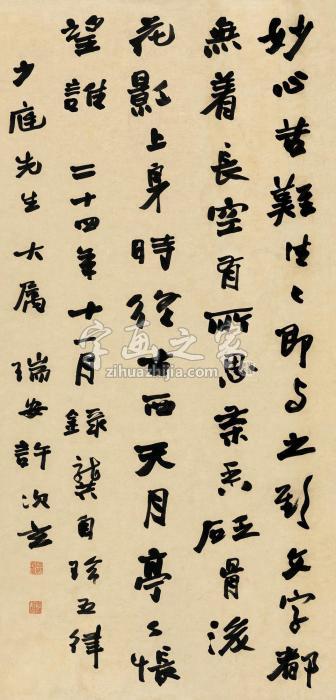 妙心苦難住〻即与之文字都
無着長空有所思茶香砭骨後
花影上身時終古西天月亭〻悵
望誰 二十四年十一月 錄龔自珍五律
少庭先生大属 瑞安許次玄
字画之家
zihuazhijia.com